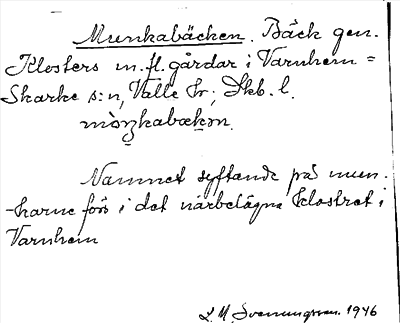 Munkabäcken. Bäck gen.
Klosters m. fl. gårdar i Varnhem =
Skarke s:n, Valle hr; Skb. l.
mòŋkabækən.
Namnet syftande på mun-
-karne förs i det närbelägna klostret i
Varnhem
L. M. Svenungsson. 1946